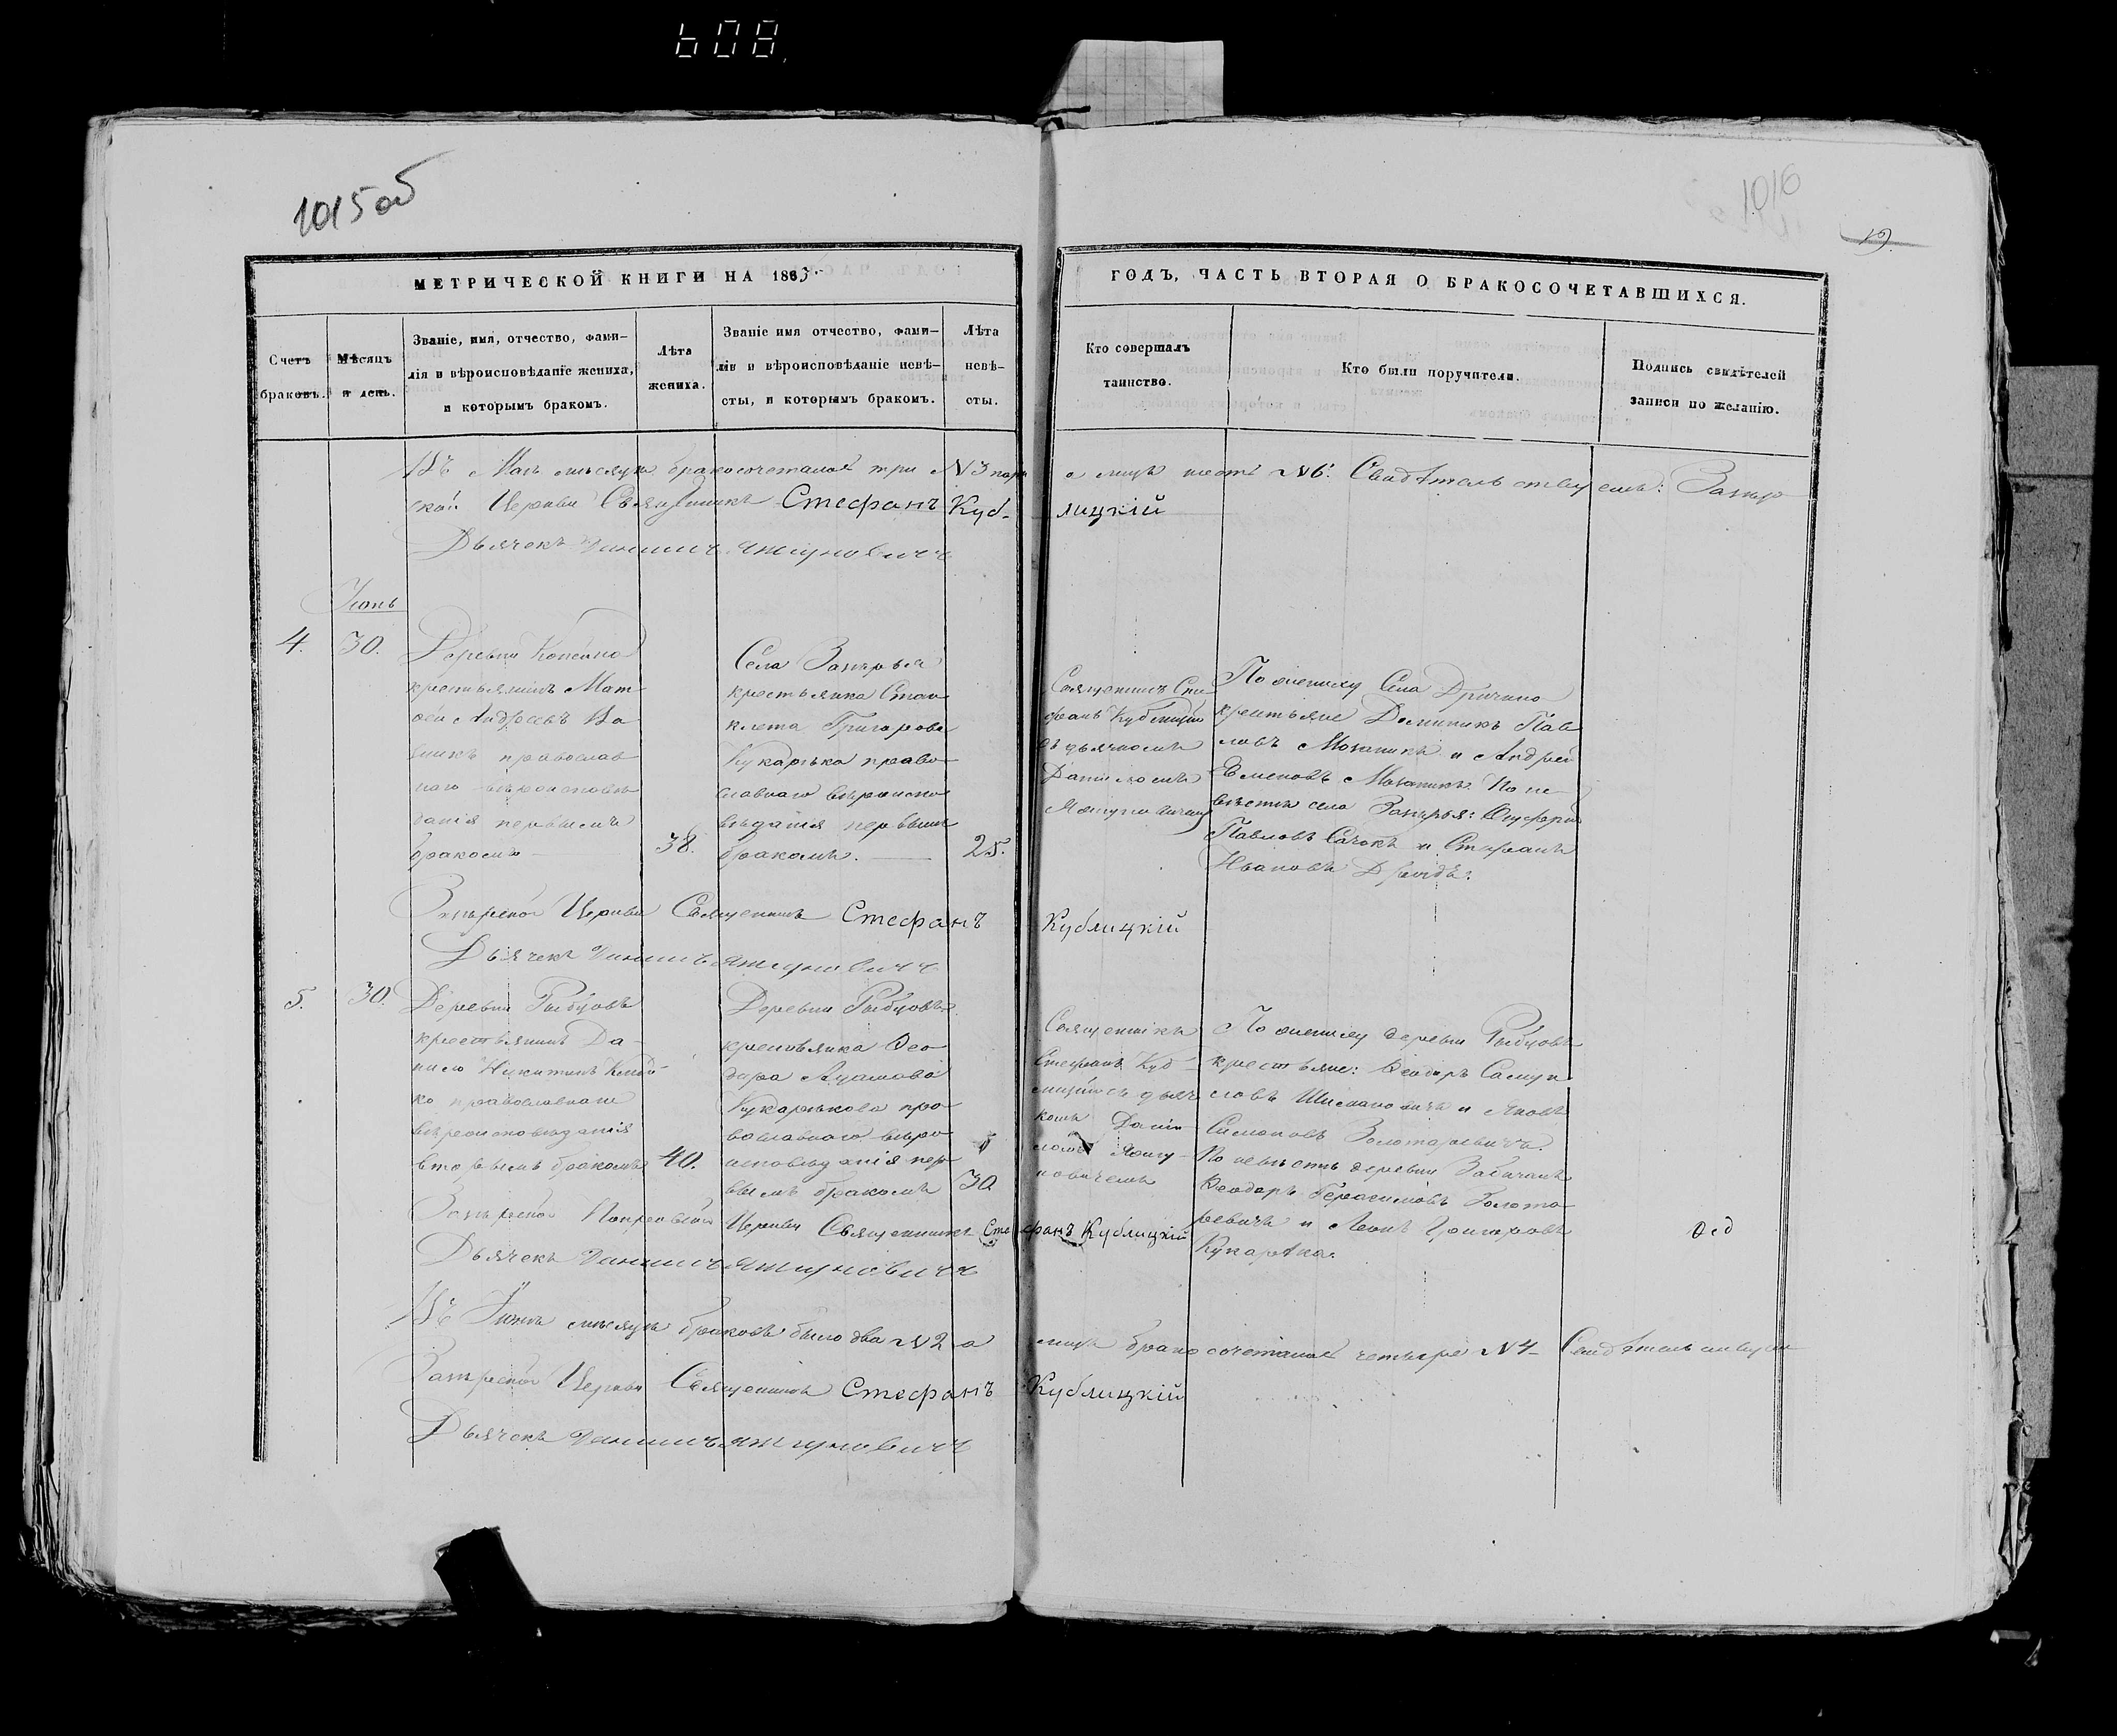 608
1015 об
1016
19.
МЕТРИЧЕСКОЙ КНИГИ НА 1863.
ГОДЪ, ЧАСТЬ ВТОРАЯ О БРАКОСОЧЕТАВШИХСЯ.
Счетъ
браковъ.
Мѣсяцъ
и день.
Званіе, имя, отчество, фами-
лія и вѣроисповѣданіе жениха,
и которымъ бракомъ.
Лѣта
жениха.
Званіе имя отчество, фами-
лія и вѣроисповѣданіе невѣ-
сты, и которымъ бракомъ.
Лѣта
невѣ-
сты.
Кто совершалъ
таинство.
Кто были поручители.
Подпись свидѣтелей
записи по желанію.
Въ Маѣ мѣсяцѣ бракосочеталось три №3 пары
а лицъ шесть №6. Свидѣтельствуемъ:
Церкви Священникъ Стефанъ Куб-
лицкій
Дьячекъ Даніилъ Яжгуновичъ
Іюнь
4.
30.
Деревни
крестьянинъ Мат-
ѳей Андреевъ
православ
наго вѣроисповѣ
данія первымъ
бракомъ
38.
Села Запрья
крестьянка
Григорова
Кукарѣка право-
славнаго вѣроиспо
вѣданія первымъ
бракомъ.
25.
Священникъ Сте
фанъ Кублицкій
съ дьячкомъ
Даніиломъ
По жениху Села Дричина
крестьяне Доминикъ Пав
ловъ и Андрей
По не-
вѣстѣ села
Павловъ Сачокъ и Стефанъ
Ивановъ
Церкви Священникъ Стефанъ
Кублицкій
Дьячекъ Даніилъ Яжгуновичъ
5.
30.
Деревни Рыбцовъ
крестьянинъ Да-
нило Никитинъ
ко православнаго
вѣроисповѣданія
вторымъ бракомъ
40.
Деревни Рыбцовъ
крестьянка Ѳео-
дора Адамова
Кукарѣкова пра-
вославнаго вѣро
исповѣданія пер
вымъ бракомъ
30
Священникъ
Стефанъ Куб-
лицкій съ дьяч
комъ Даніи
ломъ Яжгу-
новичемъ
По жениху деревни Рыбцовъ
крестьяне: Ѳеодоръ Самуи
ловъ Шимановичъ и Яковъ
Симоновъ Золотаревичъ.
По невѣстѣ деревни
Ѳеодоръ Герасимовъ Золота
ревичъ и Леонъ Григоровъ
Кукарѣка.
Ѳед
Покровской Церкви Священникъ Стефанъ Кублицкій
Дьячекъ Даніилъ Яжгуновичъ
Въ Іюнѣ мѣсяцѣ браковъ было два №2 а
лицъ бракосочеталось четыре №4 Свидѣтельствуемъ
Церкви Священникъ Стефанъ
Кублицкій
Дьячекъ Даніилъ Яжгуновичъ